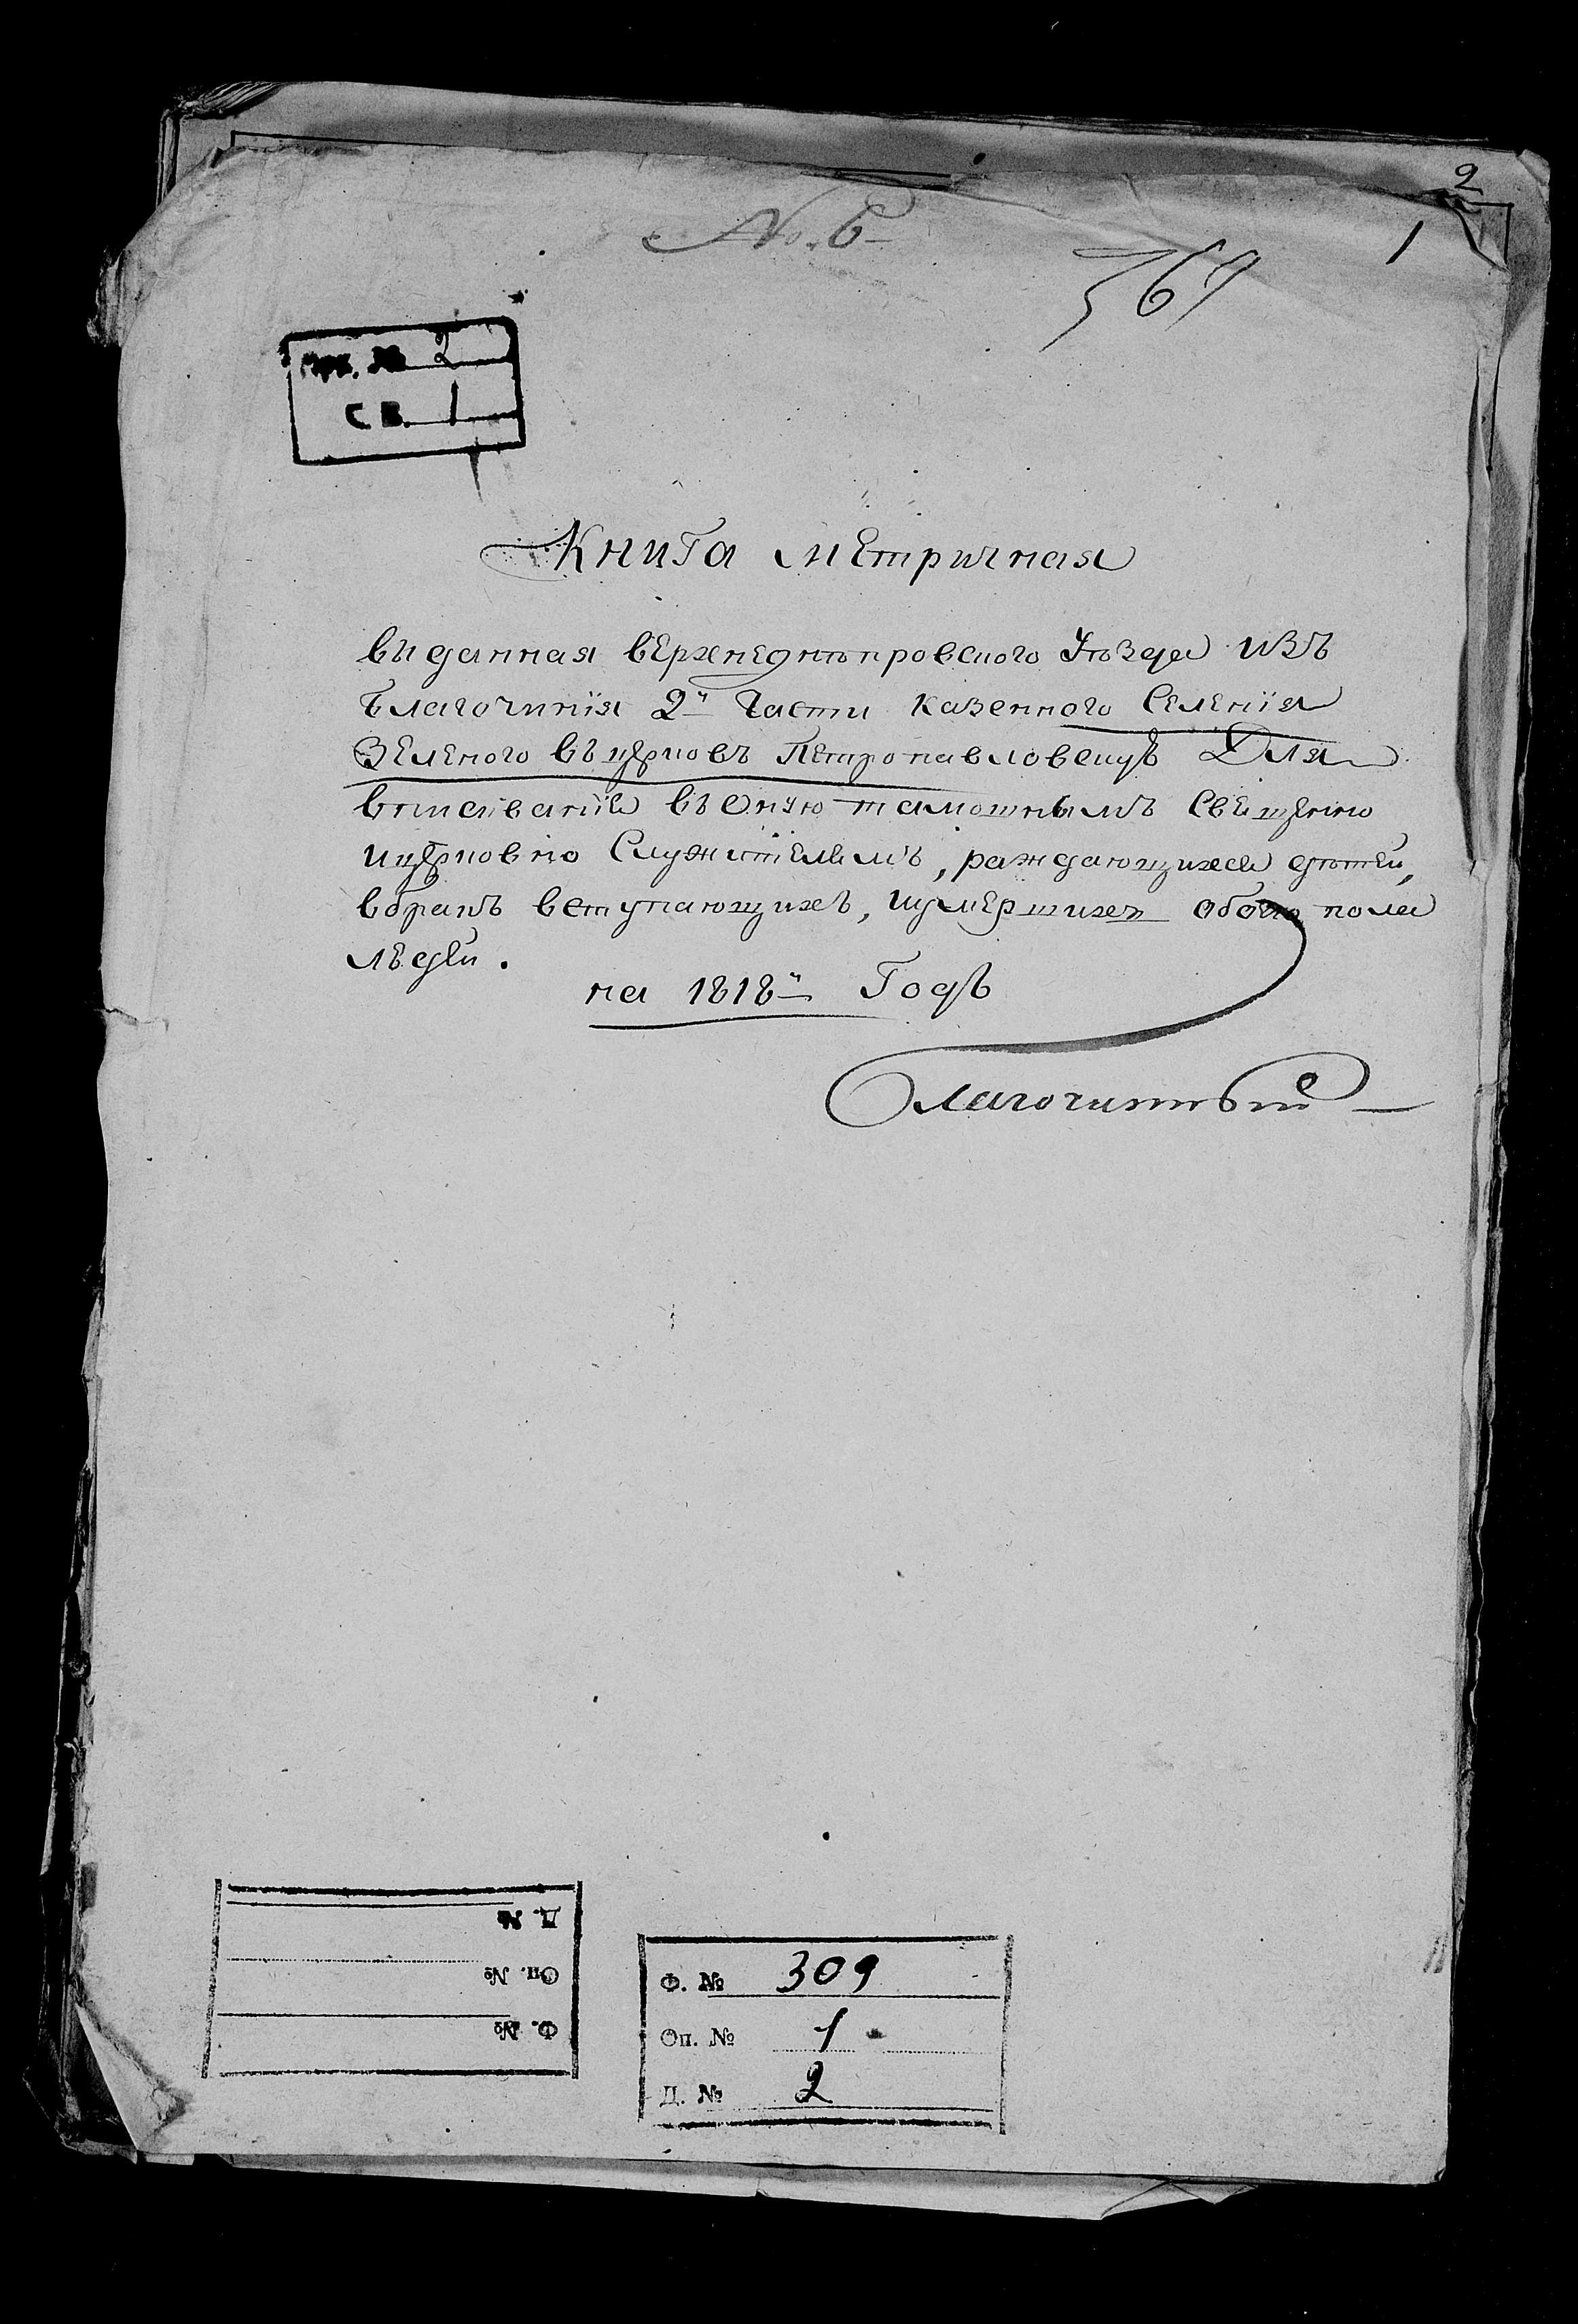 2
1
No. 6
569
Арх. № 2
СВ. 1
Книга метричная
выданная верхнеднѣпровского уѣзда изъ
благочинiя 2й части казенного селенiя
зеленого въ церковъ петропавловскую Для
вписыванiя въ оную тамошнымъ священно
ицерковно служителямъ, раждающихся дѣтей,
вбракъ вступающихъ, иумершихъ обоего пола
людей.
на 1818й Годъ
Благочинный
Д. №
Оп. №
Ф. №
Ф. № 309
Оп. № 1
Д. № 2